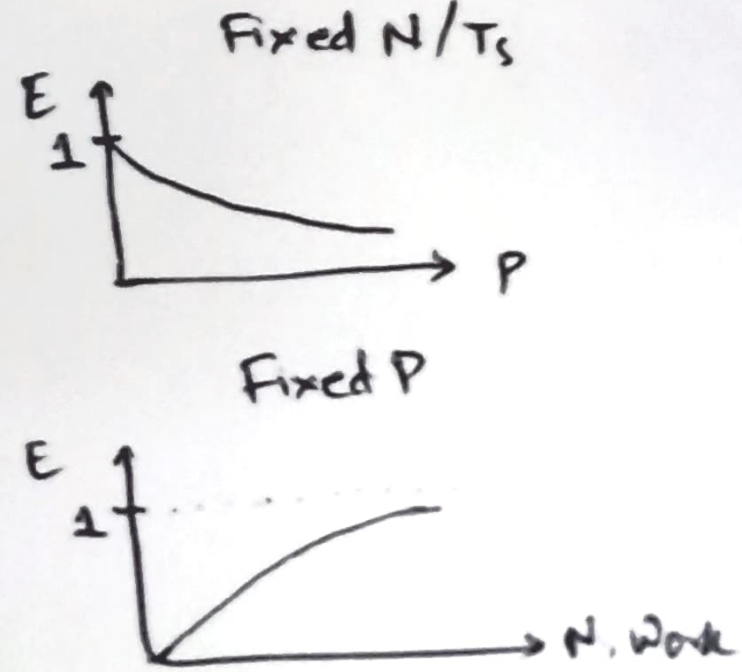 Fixed N/Ts
E
1
P
Fixed P
E
1
N, Work